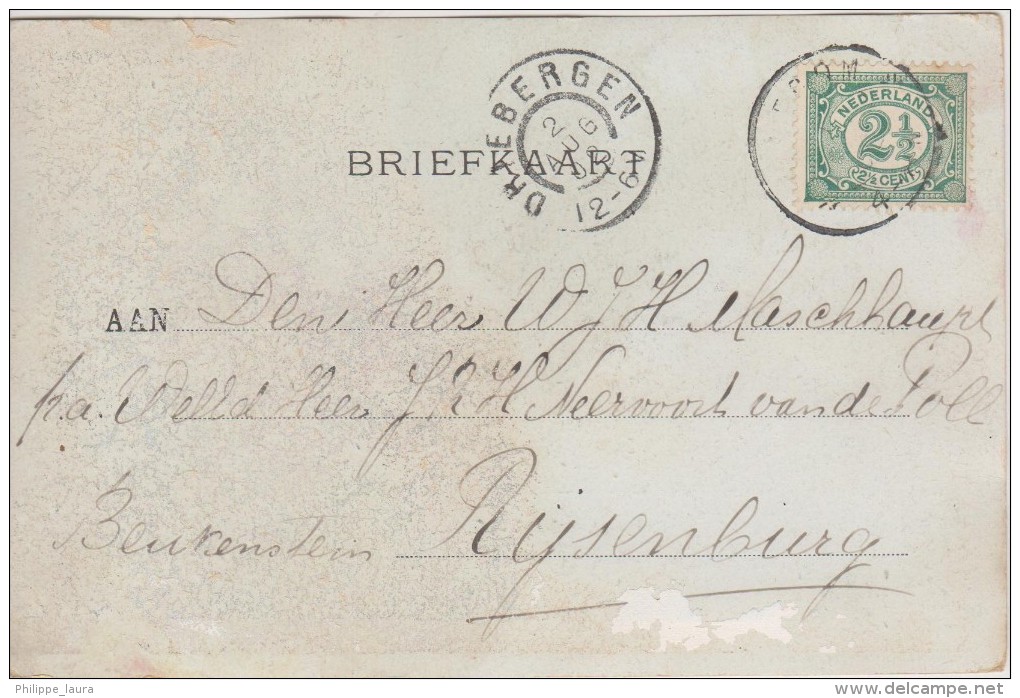 DRIEBERGEN
2
AUG
12-6
NEDERLAND
2½
2½ CENT
BRIEFKAART
AAN Den Heer W J H Maschhaupt
p.a. Weled Heer J R H Neervoort van de Poll
Beukenstein Rijsenburg
Philippe_laura
www.delcampe.net